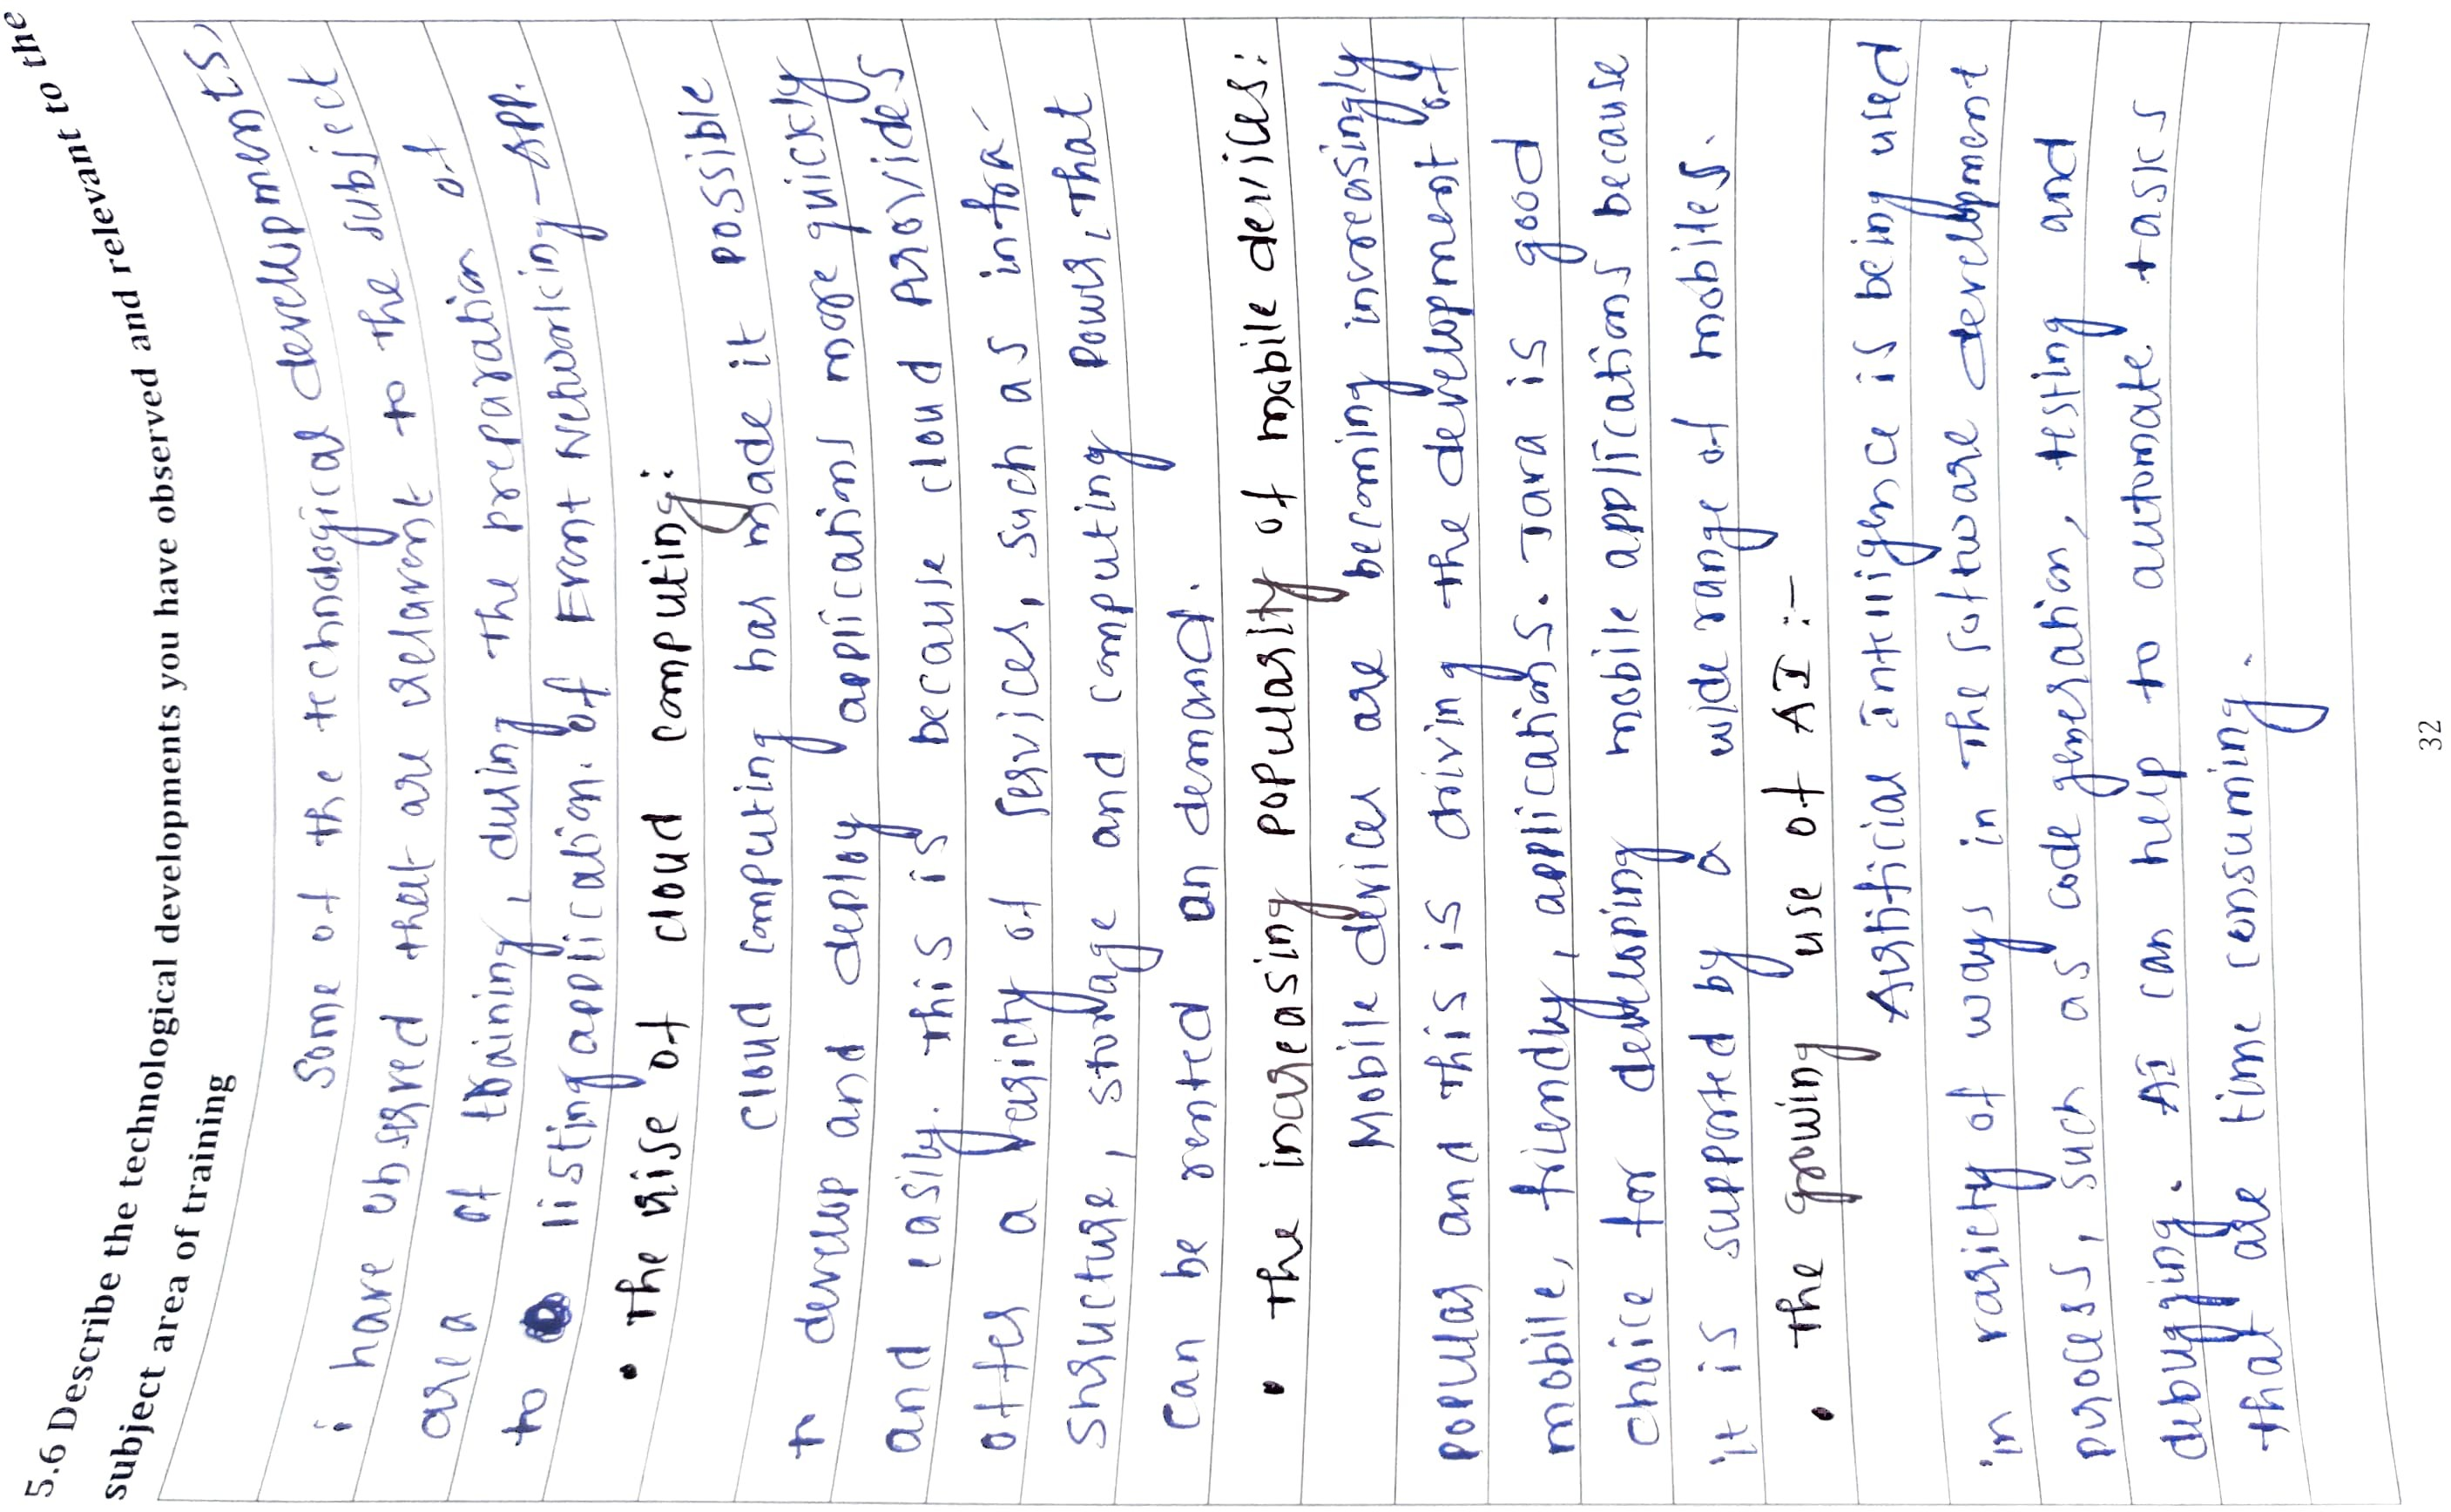 5.6 Describe the technological developments you have observed and relevant to the
subject area of training
Some of the technological developments,
i have observed that are relavent to the subject
area of training, during the preparation of
to listing application of Event Networking-App.
• The rise of cloud computing:
cloud computing has made it possible
to develop and deploy applications more quickly
and easily. This is because cloud provides
offer a variety of services, such as infra-
structure, storage and computing power, that
can be rented on demand.
• The increasing popularity of mobile devices:
Mobile devices are becoming increasingly
popular and this is driving the development of
mobile, friendly, applications. Java is good
choice for developing mobile applications because
it is supported by a wide range of mobiles.
• The growing use of AI :-
Artificial Intelligence is being used
in variety of ways in the software development
process, such as code generation, testing and
debugging. AI can help to automate tasks
that are time consuming.
32